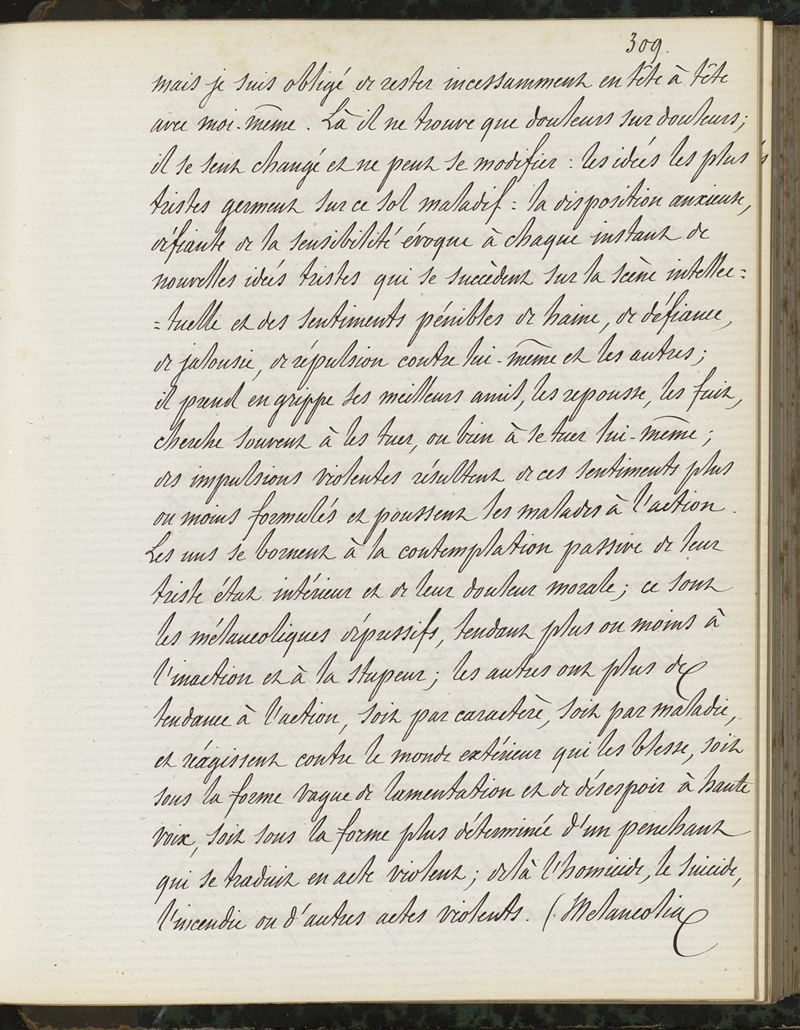 309.
mais je suis obligé de rester incessamment en tête à tête
avec moi-même. Là il ne trouve que douleurs sur douleurs;
il se sent changé et ne peut se modifier : les idées les plus
tristes germent sur ce sol maladif : la disposition anxieuse,
défiante de la sensibilité évoque à chaque instant de
nouvelles idées tristes qui se succèdent sur la scène intellec=
=tuelle et des sentiments pénibles de haine, de défiance,
de jalousie, de répulsion contre lui-même et les autres;
il prend en grippe ses meilleurs amis, les repousse, les fuit,
cherche souvent à les tuer, ou bien à se tuer lui-même;
des impulsions violentes résultent de ces sentiments plus
ou moins formulés et poussent les malades à l'action.
Les uns se bornent à la contemplation passive de leur
triste état intérieur et de leur douleur morale; ce sont
les mélancoliques dépressifs, tendant plus ou moins à
l'inaction et à la stupeur; les autres ont plus de
tendance à l'action, soit par caractère, soit par maladie,
et réagissent contre le monde extérieur qui les blesse, soit
sous la forme vague de lamentation et de désespoir à haute
voix, soit sous la forme plus déterminée d'un penchant
qui se traduit en acte violent; de là l'homicide, le suicide,
l'incendie ou d'autres actes violents. (Melancolia